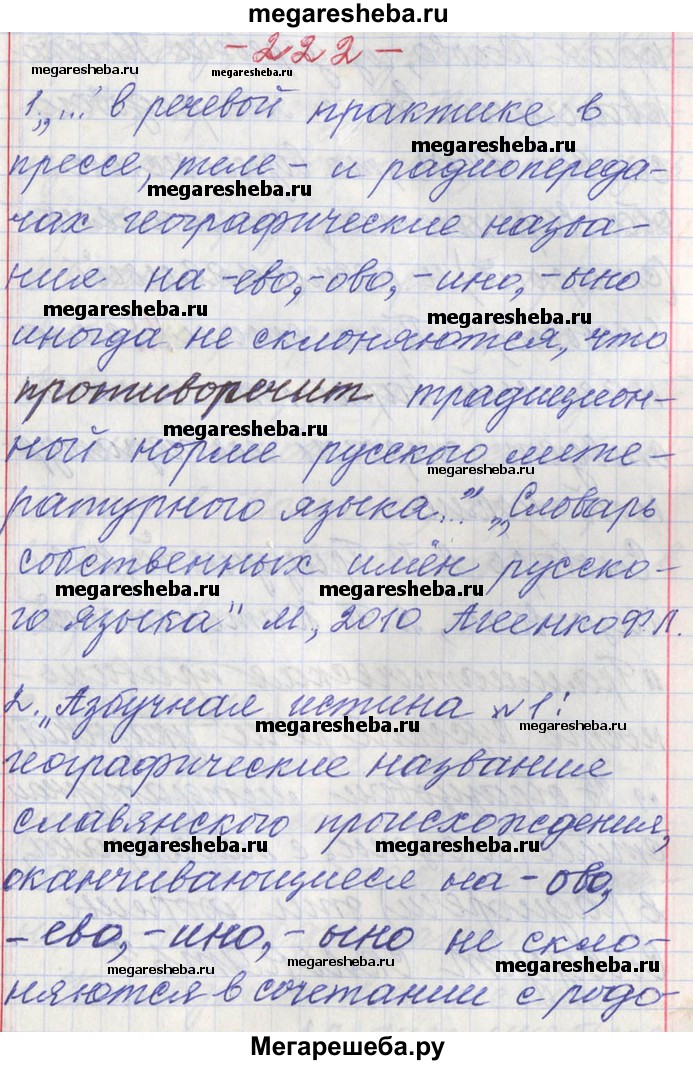 megaresheba.ru
-222-
megaresheba.ru megaresheba.ru
1. „...” в речевой практике в
megaresheba.ru
прессе, теле- и радиопереда-
megaresheba.ru
чах географические назва-
ния на -ево, -ово, -ино, -ыно
megaresheba.ru megaresheba.ru
иногда не склоняются, что
противоречит традицион-
megaresheba.ru
ной норме русского лите-
megaresheba.ru
ратурного языка...” „Словарь
собственных имён русско-
megaresheba.ru megaresheba.ru
го языка” М, 2010 Агеенко Ф.Л.
2. „Азбучная истина №1:
megaresheba.ru megaresheba.ru
географические название
славянского происхождения,
megaresheba.ru megaresheba.ru
оканчивающиеся на -ово,
-ево, -ино, -ыно не скло-
megaresheba.ru megaresheba.ru megaresheba.ru
няются в сочетании с родо-
Мегарешеба.ру